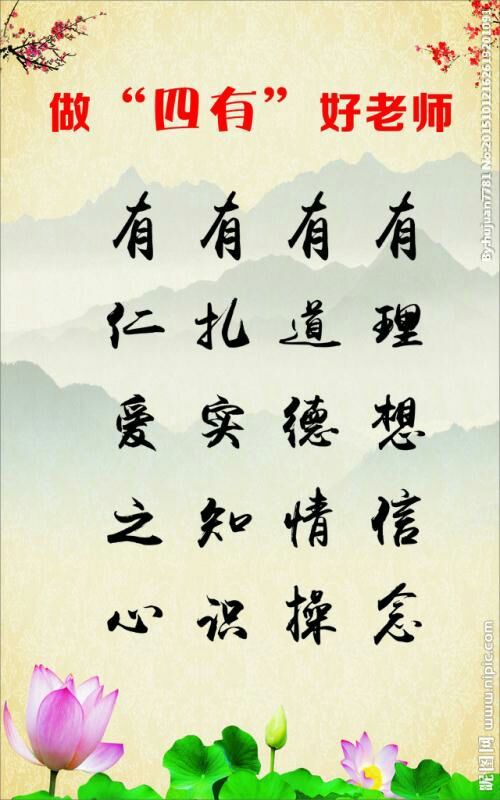 做“四有”好老师
有理想信念
有道德情操
有扎实知识
有仁爱之心
By:hujuan7781 No:20151012162619201091
昵图网 www.nipic.com